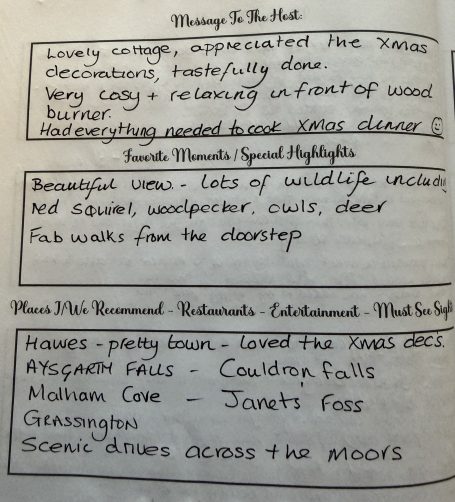 Message To The Host:
Lovely cottage, appreciated the Xmas
decorations, tastefully done.
Very cosy + relaxing in front of wood
burner.
Had everything needed to cook Xmas dinner ☺
Favorite Moments / Special Highlights
Beautiful view - lots of wildlife includi
red squirel, woodpecker, owls, deer
Fab walks from the doorstep
Places I/We Recommend - Restaurants - Entertainment - Must See Sigh
Hawes - pretty town - loved the Xmas dec's.
AYSGARTH FALLS - Couldron falls
Malham Cove - Janets Foss
GRASSINGTON
Scenic drives across the moors